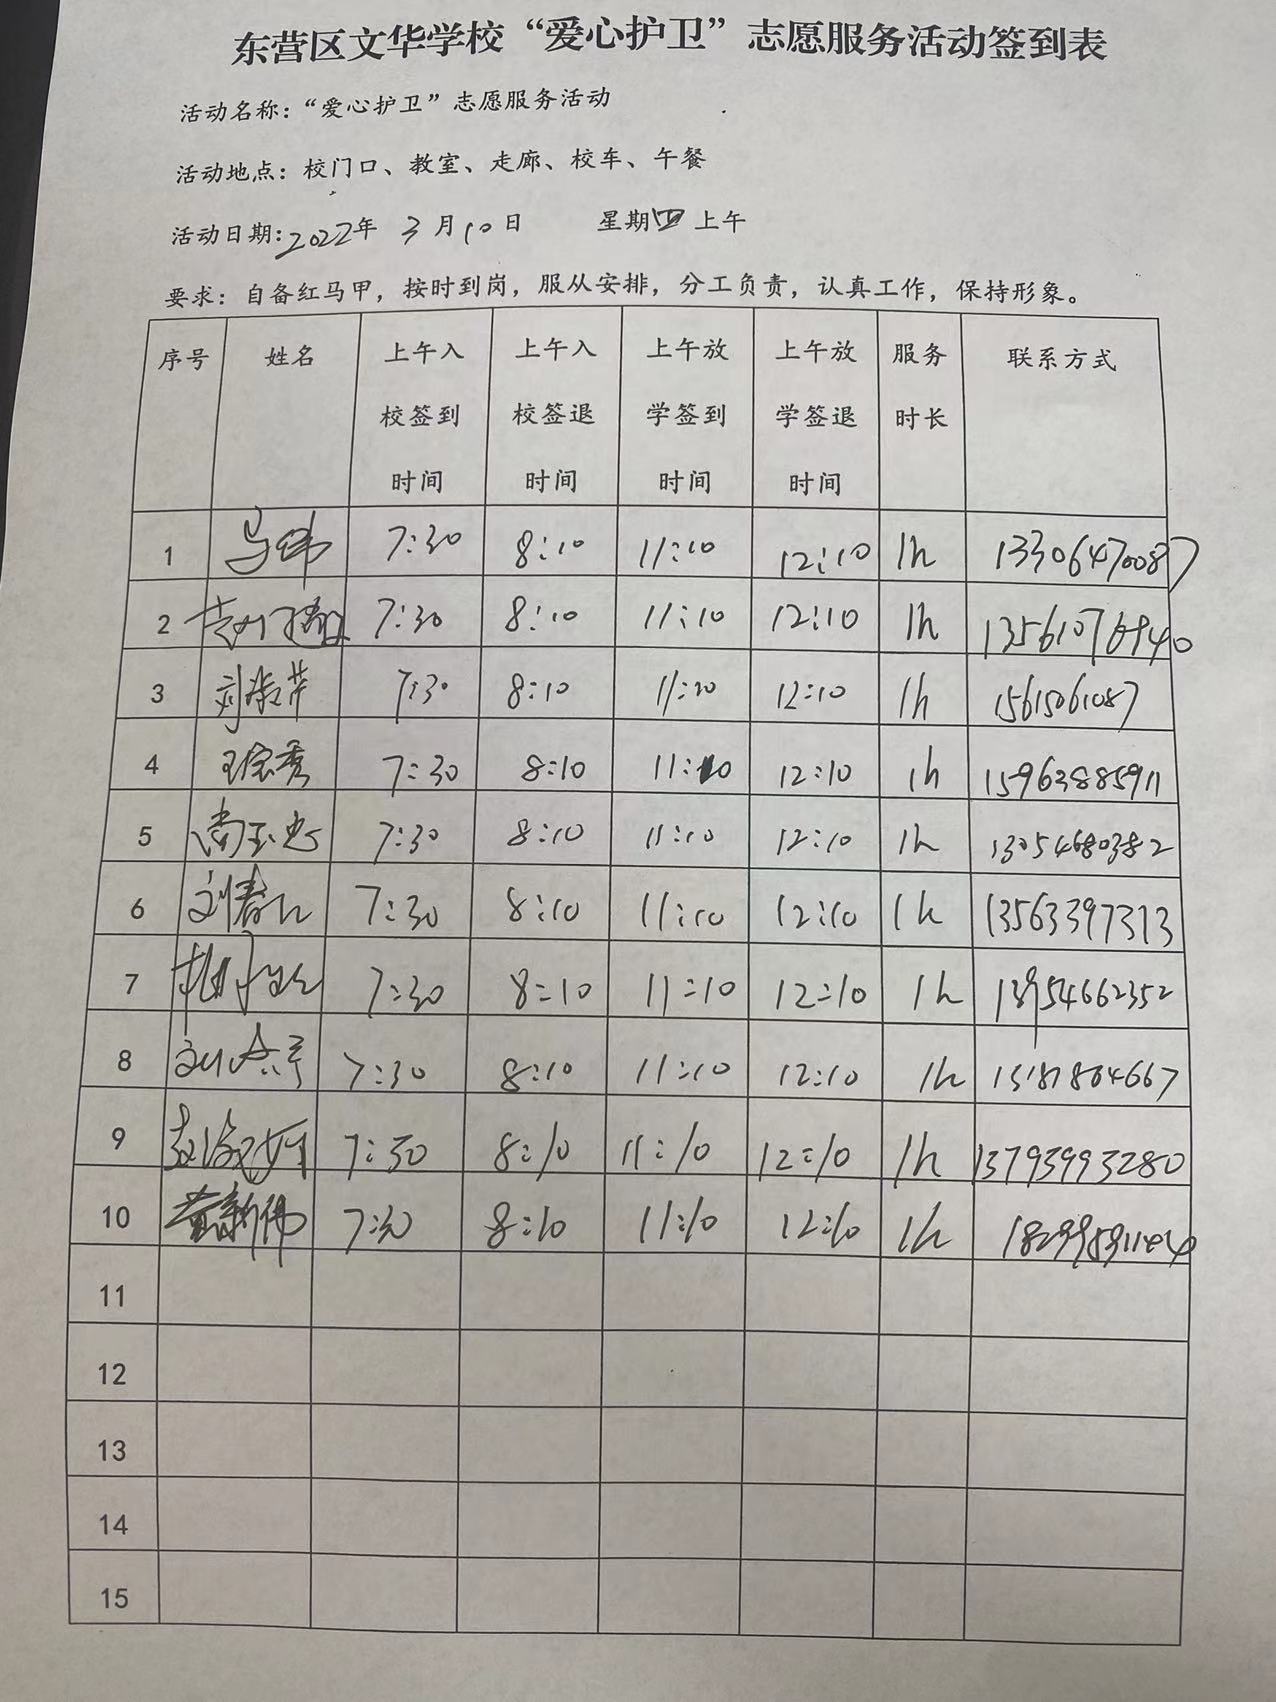 东营区文华学校“爱心护卫”志愿服务活动签到表
活动名称：“爱心护卫”志愿服务活动
活动地点：校门口、教室、走廊、校车、午餐
活动日期：2022年 3月10日 星期四 上午
要求：自备红马甲，按时到岗，服从安排，分工负责，认真工作，保持形象。
序号 姓名 上午入校签到时间 上午入校签退时间 上午放学签到时间 上午放学签退时间 服务时长 联系方式
1 马伟 7:30 8:10 11:10 12:10 1h 13306470087
2 7:30 8:10 11:10 12:10 1h
3 刘淑芹 7:30 8:10 11:10 12:10 1h 15615061087
4 王宝秀 7:30 8:10 11:10 12:10 1h 15963885911
5 尚玉忠 7:30 8:10 11:10 12:10 1h 13054680382
6 刘春 7:30 8:10 11:10 12:10 1h 13563397313
7 7:30 8:10 11:10 12:10 1h 13954662352
8 7:30 8:10 11:10 12:10 1h 15181864667
9 7:30 8:10 11:10 12:10 1h 13793993280
10 黄新伟 7:30 8:10 11:10 12:10 1h
11
12
13
14
15